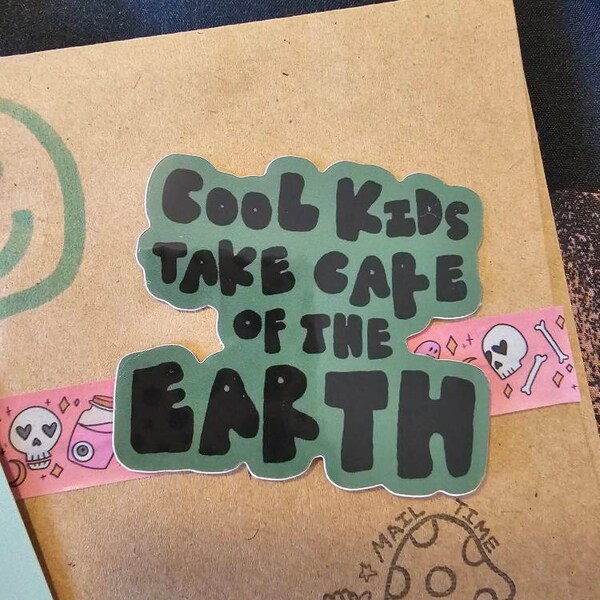 COOL KIDS
TAKE CARE
OF THE
EARTH
MAIL TIME